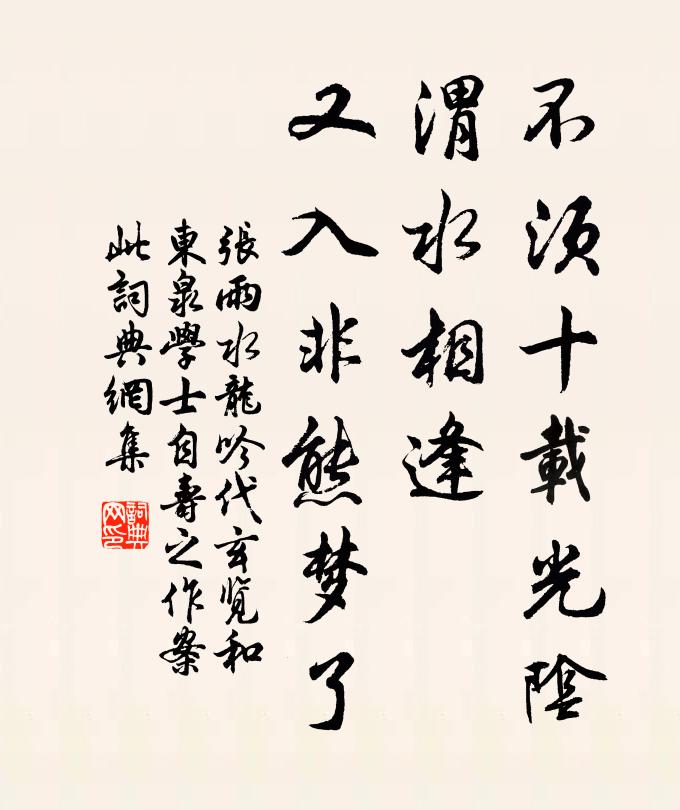 不須十載光陰
渭水相逢
又入非熊梦了
張雨水龍吟代玄覽和
東泉學士自壽之作案
此詞典網集
詞典网印